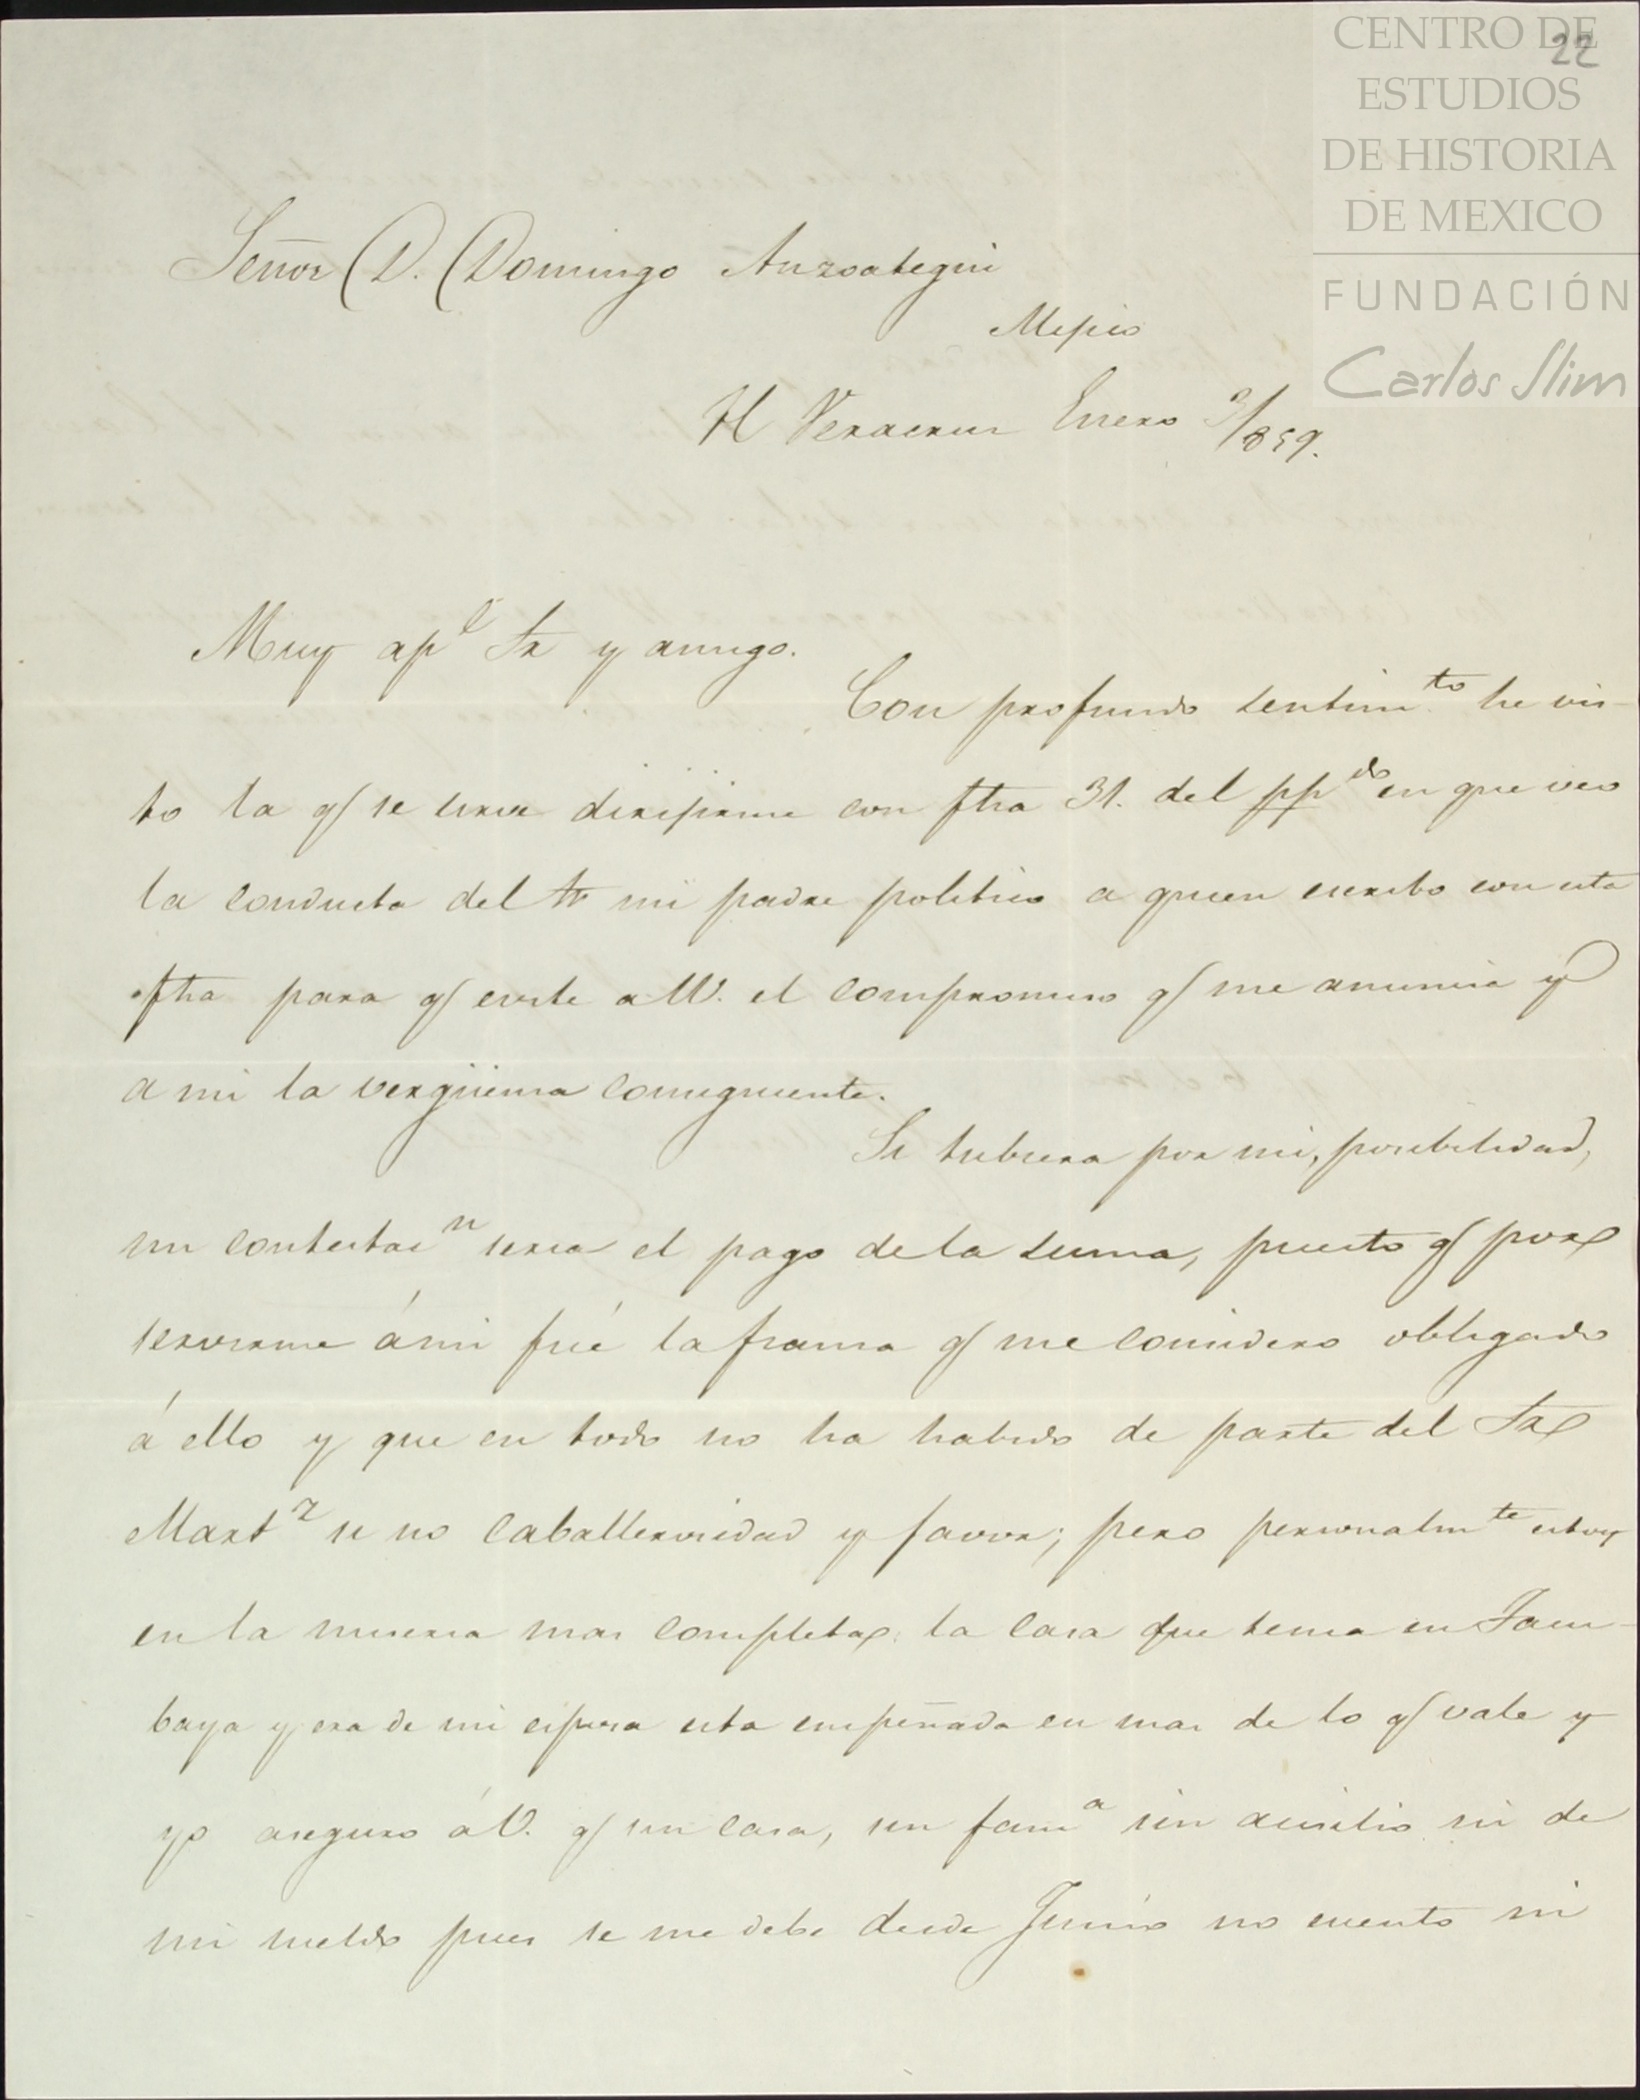 CENTRO DE
ESTUDIOS
DE HISTORIA
DE MEXICO
FUNDACIÓN
Carlos Slim
22
Señor D. Domingo Anzoategui
Mejico
H Veracruz Enero 9/859.
Muy ap.e Sr y amigo.
Con profundo sentimto he vis-
to la q/ se sirve dirijirme con fha 31. del ppdo en que veo
la conducta del Sr mi padre politico a quien escribo con esta
fha para q/ evite a W. el compromiso q/ me anuncia y
a mi la vergüenza consiguiente.
Si tubiera por mi, posibilidad,
mi contestacn seria el pago de la suma, puesto q/ por
servirme á mi fué la fianza q/ me considero obligado
á ello y que en todo no ha habido de parte del Sr
Martz si no caballerosidad y favor; pero personalmte estoy
en la miseria mas completa; la casa que tenia en Tacu-
baya y era de mi esposa esta empeñada en mas de lo q/ vale y
yo aseguro á V. q/ sin casa, sin fama sin auxilio ni de
mi sueldo pues se me debe desde Junio no cuento ni